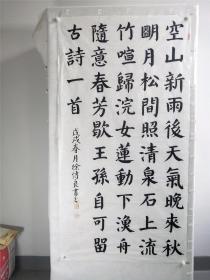 空山新雨後天氣晚來秋
明月松間照清泉石上流
竹喧歸浣女蓮動下漁舟
隨意春芳歇王孫自可留
古詩一首
戊戌春月徐傳良書